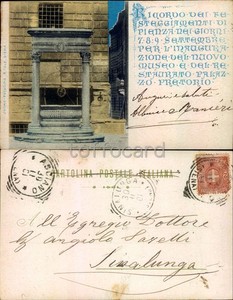 RICORDO DEI FE
STEGGIAMENTI DI
PIENZA NEI GIORNI
7. 8. 9. SETTEMBRE
PER L'INAUGURA
ZIONE DEL NUOVO
MUSEO E DEL RE
STAURATO PALAZ
ZO PRETORIO
Auguri e saluti
torrocard
CARTOLINA POSTALE ITALIANA
All' Egregio Dottore
Angiolo Savelli
Sinalunga